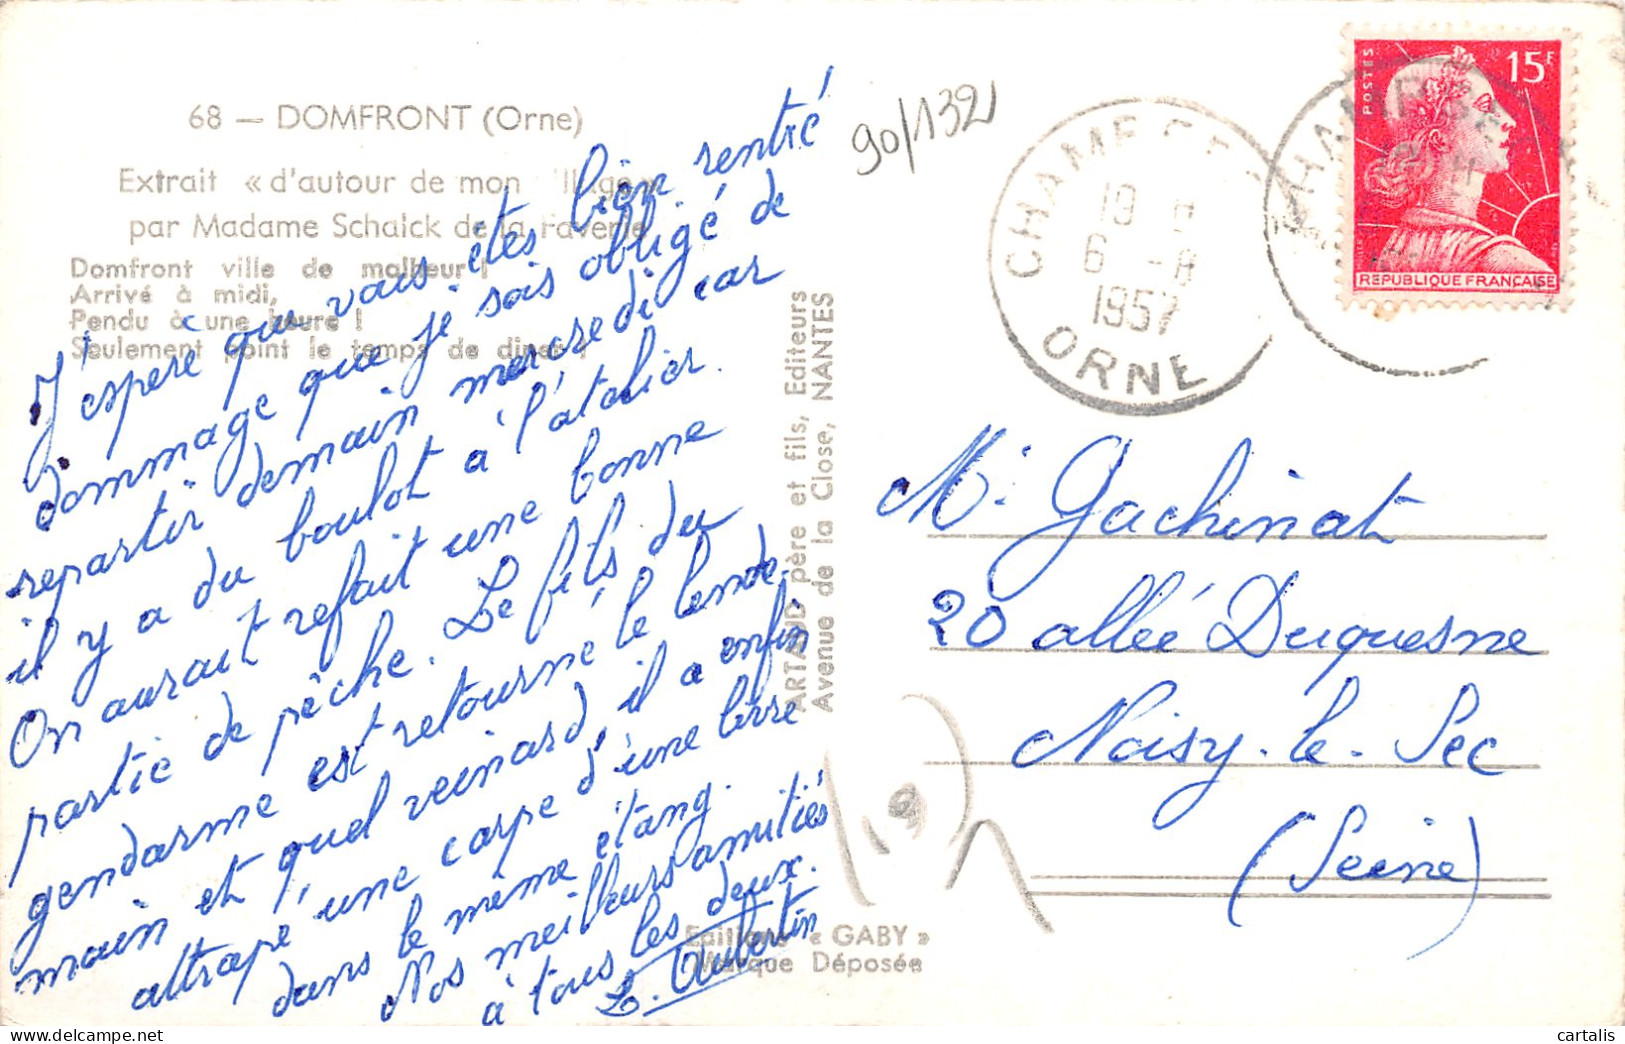 68 — DOMFRONT (Orne)
Extrait « d'autour de mon
par Madame Schalck de la Faverie
Domfront ville de malheur !
Arrivé à midi,
Pendu à une heure !
Seulement point le temps de diner !
J'espère que vous êtes bien rentré
dommage que je sois obligé de
repartir demain mercredi car
il y a du boulot à l'atelier.
On aurait refait une bonne
partie de pêche. Le fils du
gendarme est retourné le lende-
main et quel veinard, il a enfin
attrapé une carpe d'une livre
dans le même étang.
Nos meilleurs amitiés
à tous les deux.
L. Aubertin
90/132
ARTAUD père et fils, Editeurs
Avenue de la Close, NANTES
Editions « GABY »
Marque Déposée
CHAMP
19
6 -8
1957
ORNE
POSTES
15F
REPUBLIQUE FRANÇAISE
Mr Gachinat
20 allée Duquesne
Noisy-le-Sec
(Seine)
cartalis